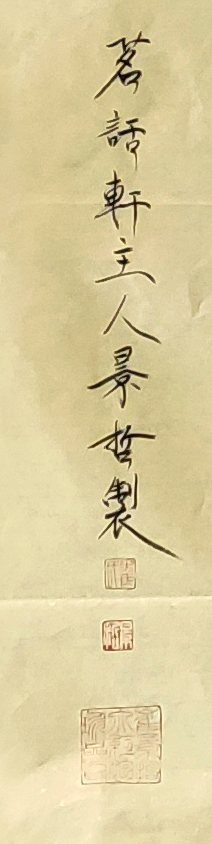 茗話軒主人景哲製